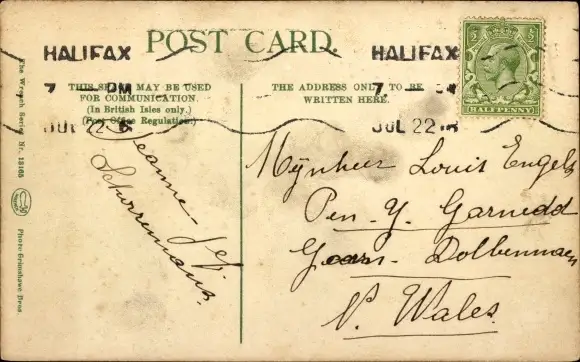 HALIFAX
7 PM
JUL 22
POST CARD.
HALIFAX
7
JUL 22
HALFPENNY
THIS SPACE MAY BE USED
FOR COMMUNICATION.
(In British Isles only.)
(Post Office Regulation.)
THE ADDRESS ONLY TO BE
WRITTEN HERE.
The Wrench Series Nr. 13165
Photo Grimshawe Bros.
Jeanne
Mynheer Louis Engels
Pen. Y. Garnedd
Dolbenmaen
N. Wales